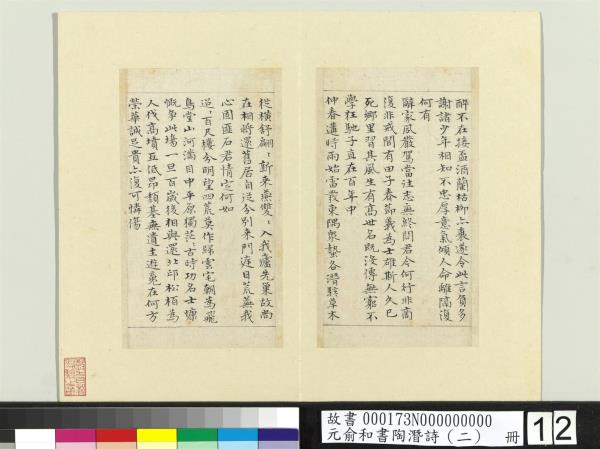 醉不在接盃酒蘭枯柳亦衰遂令此言負多
謝諸少年相知不忠厚意氣傾人命離隔復
何有
辭家夙嚴駕當往志無終問君今何行非商
復非戎聞有田子春節義為士雄斯人久已
死鄉里習其風生有高世名既沒傳無窮不
學狂馳子直在百年中
仲春遘時雨始雷發東隅眾蟄各潛駭草木
從橫舒翩翩新來燕雙雙入我廬先巢故尚
在相將還舊居自從分別來門庭日荒蕪我
心固匪石君情定何如
迢迢百尺樓分明望四荒暮作歸雲宅朝為飛
鳥堂山河滿目中平原獨茫茫古時功名士慷
慨爭此場一旦百歲後相與還北邙松柏為
人伐高墳互低昂頹基無遺主遊魂在何方
榮華誠足貴亦復可憐傷
故書 000173N000000000
元俞和書陶潛詩(二) 冊
12